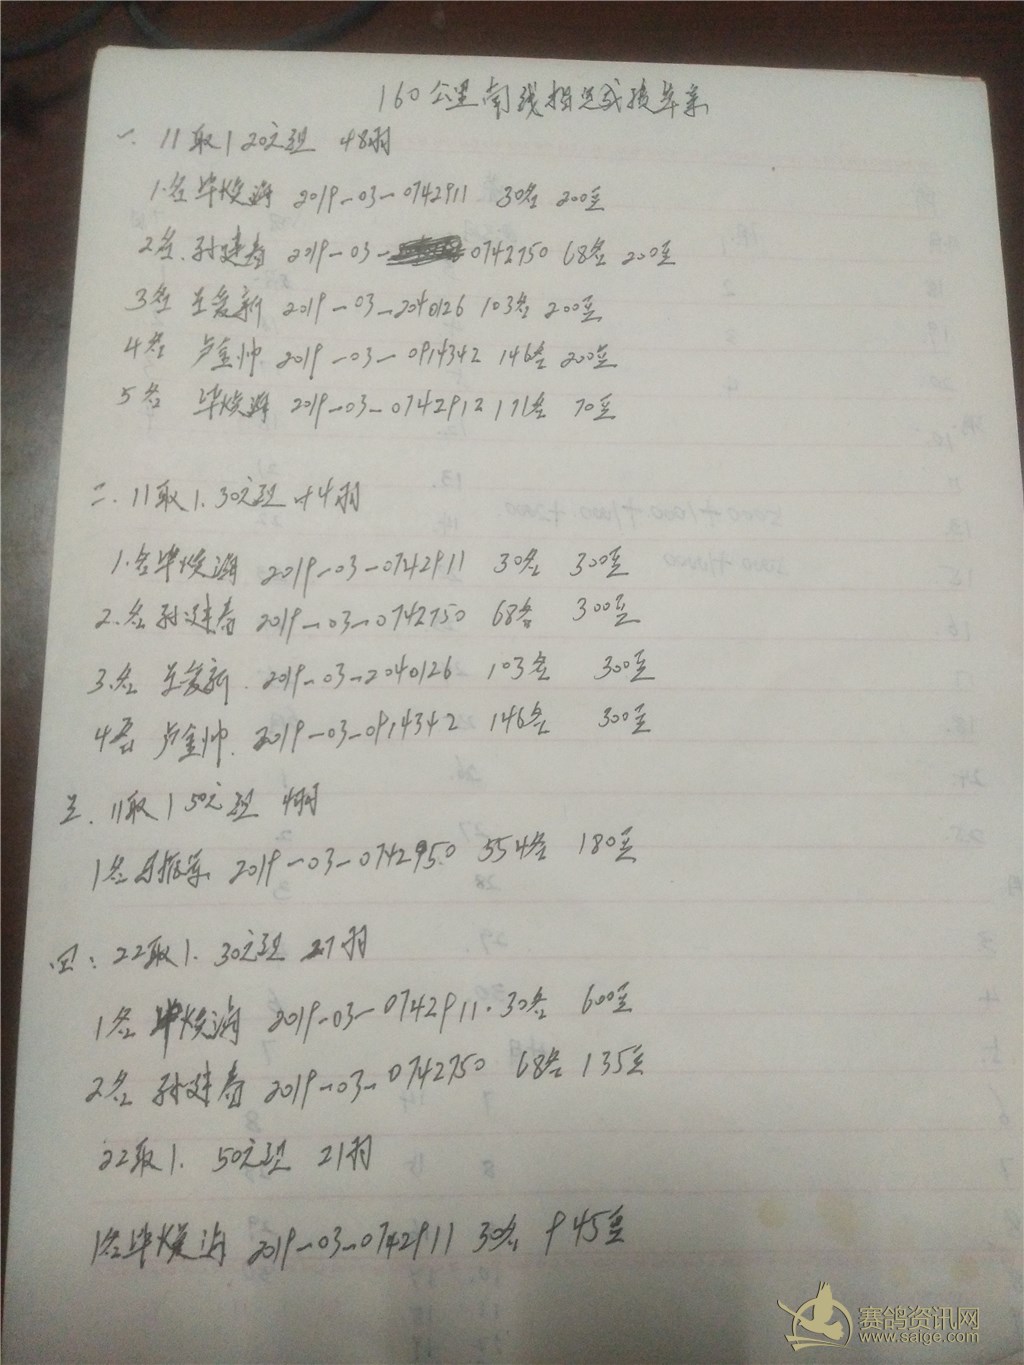 160公里南线指定成绩单
一. 11取1 20元组 48羽
1.名毕焕海 2019-03-0742911 30名 200元
2名.孙建春 2019-03-0742750 68名 200元
3名 王爱新 2019-03-2040126 103名 200元
4名 卢金帅 2019-03-0914342 146名 200元
5名 毕焕海 2019-03-0742912 171名 70元
二. 11取1. 30元组 44羽
1.名毕焕海 2019-03-0742911 30名 300元
2.名孙建春 2019-03-0742750 68名 300元
3.名 王爱新. 2019-03-2040126 103名 300元
4名 卢金帅. 2019-03-0914342 146名 300元
三. 11取1 50元组 4羽
1名 2019-03-0742950 554名 180元
四: 22取1. 30元组 27羽
1名 毕焕海 2019-03-0742911. 30名 600元
2名 孙建春 2019-03-0742750 68名 135元
22取1. 50元组 21羽
1名毕焕海 2019-03-0742911 30名 945元
赛鸽资讯网
www.saige.com